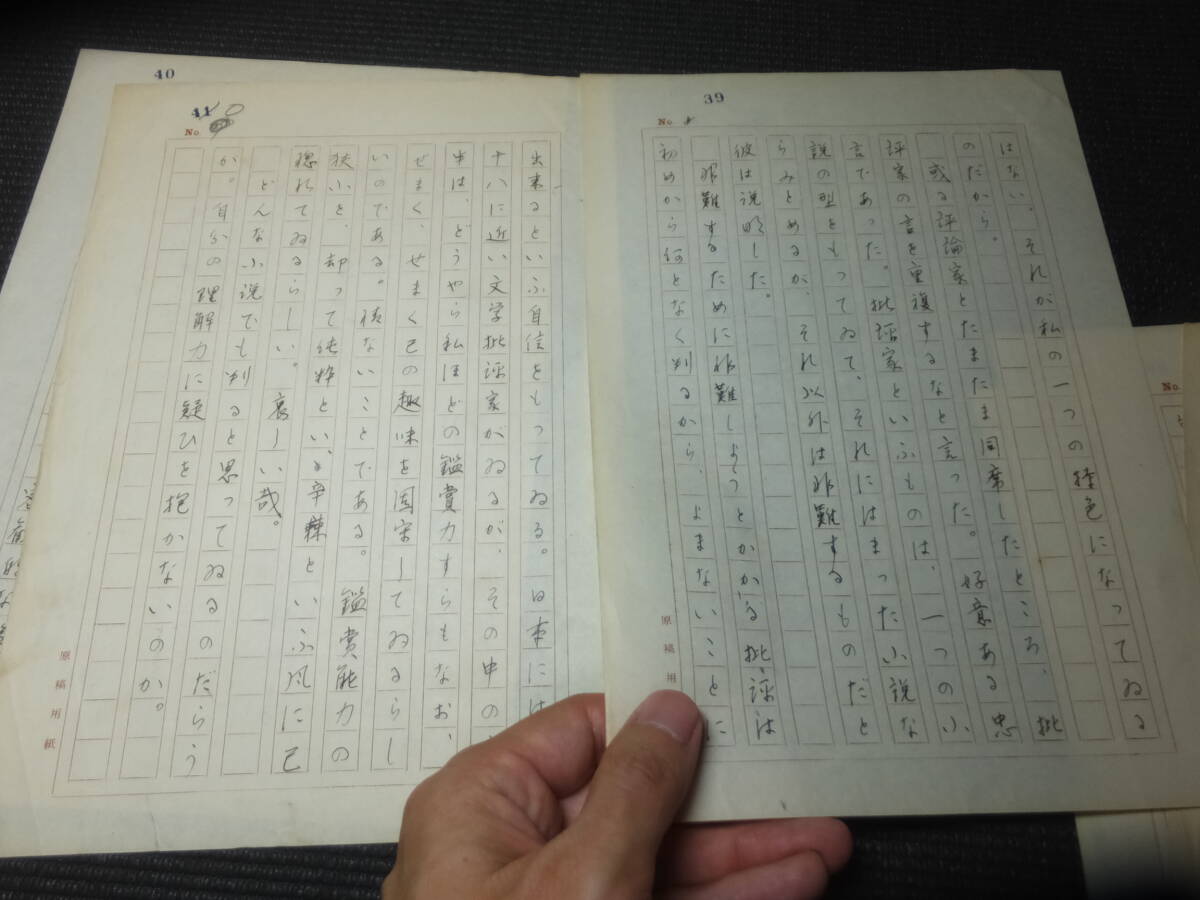 39
No.
はない。それが私の一つの特色になってゐる
のだから。
或る評論家とたまたま同席したところ、批
評家の言を重複するなと言った。好意ある忠
言であった。批評家といふものは、一つの小
説の型をもってゐて、それにはまった小説な
らみとめるが、それ以外は非難するものだと
彼は説明した。
非難するために非難しようとかかゝる批評は
初めから何となく判るから、よまないことに
原稿用
40
41
No.
出来るといふ自信をもってゐる。日本には
十八に近い文学批評家がゐるが、その中の
中は、どうやら私ほどの鑑賞力すらもなお、
せまく、せまく己の趣味を固守してゐるらし
いのである。情ないことである。鑑賞能力の
狭小を、却って純粋といひ、辛辣といふ風に己
惚れてゐるらしい。哀しい哉。
どんな小説でも判ると思ってゐるのだらう
か。自分の理解力に疑ひを抱かないのか。
原稿用紙
No.